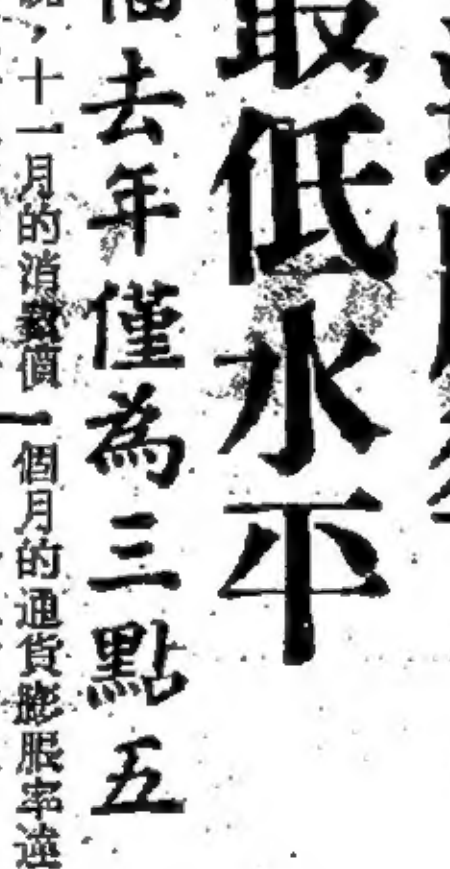 最低水平
去年僅為三點五
，十一月的消費價一個月的通貨膨脹率達